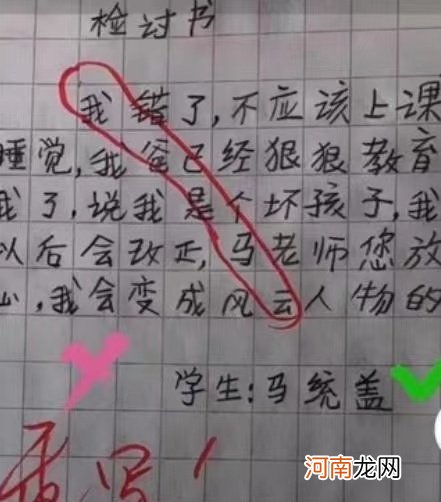 检讨书
我错了,不应该上课
睡觉,我爸已经狠狠教育
我了,说我是个坏孩子,我
以后会改正,马老师您放
心,我会变成风云人物的
学生:马统盖
重写!
河南龙网